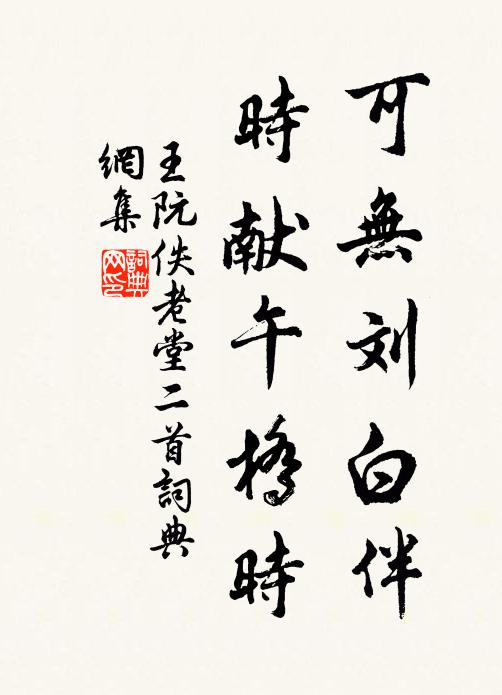 可無刘白伴
時献午橋時
王阮佚老堂二首詞典
網集
詞典网印